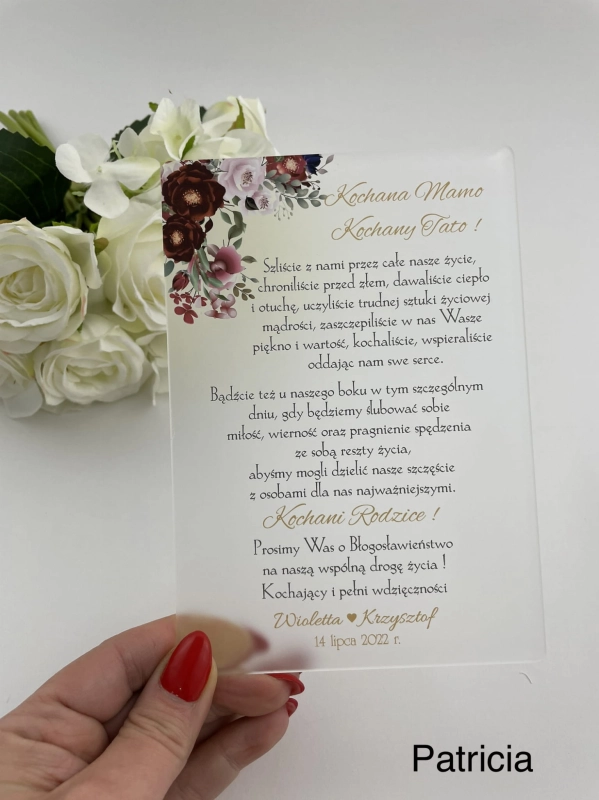 Kochana Mamo
Kochany Tato !
Szliście z nami przez całe nasze życie,
chroniliście przed złem, dawaliście ciepło
i otuchę, uczyliście trudnej sztuki życiowej
mądrości, zaszczepiliście w nas Wasze
piękno i wartość, kochaliście, wspieraliście
oddając nam swe serce.
Bądźcie też u naszego boku w tym szczególnym
dniu, gdy będziemy ślubować sobie
miłość, wierność oraz pragnienie spędzenia
ze sobą reszty życia,
abyśmy mogli dzielić nasze szczęście
z osobami dla nas najważniejszymi.
Kochani Rodzice !
Prosimy Was o Błogosławieństwo
na naszą wspólną drogę życia !
Kochający i pełni wdzięczności
Wioletta ♥ Krzysztof
14 lipca 2022 r.
Patricia